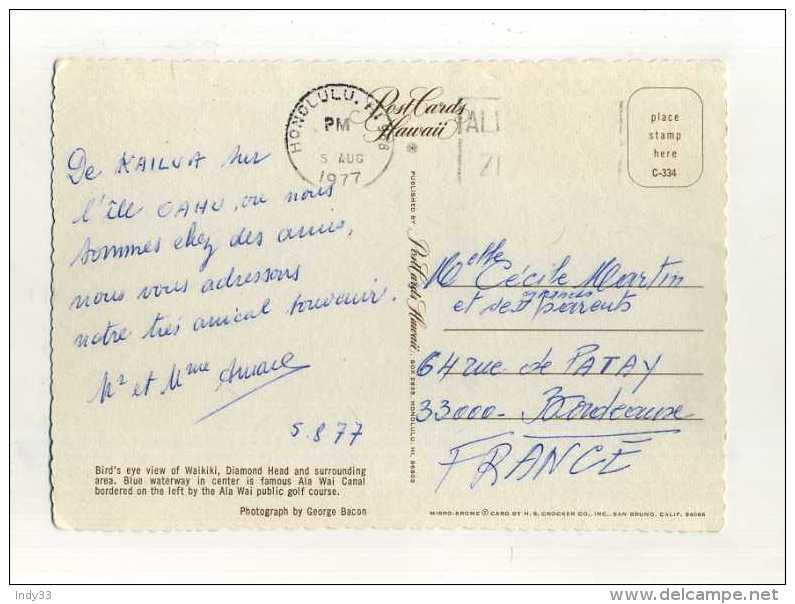 HONOLULU, HI 968
PM
5 AUG
1977
PostCards
Hawaii
place
stamp
here
C-334
De KAILUA sur
l'île OAHU, ou nous
sommes chez des amis,
nous vous adressons
notre très amical souvenir.
Mr et Mme
5.8.77
Bird's eye view of Waikiki, Diamond Head and surrounding
area. Blue waterway in center is famous Ala Wai Canal
bordered on the left by the Ala Wai public golf course.
Photograph by George Bacon
PUBLISHED BY PostCards Hawaii, BOX 2835, HONOLULU, HI, 96803
Melle Cécile Martin
et ses grands parents
64 rue de PATAY
33000 - Bordeaux
FRANCE
MIRRO-KROME ® CARD BY H. S. CROCKER CO., INC., SAN BRUNO, CALIF. 94066
Indy33
delcampe.net